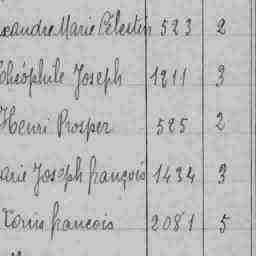 xandre Marie Célestin 523 2
Théophile Joseph 1211 3
Henri Prosper 525 2
arie Joseph françois 1434 3
Louis francois 2081 5